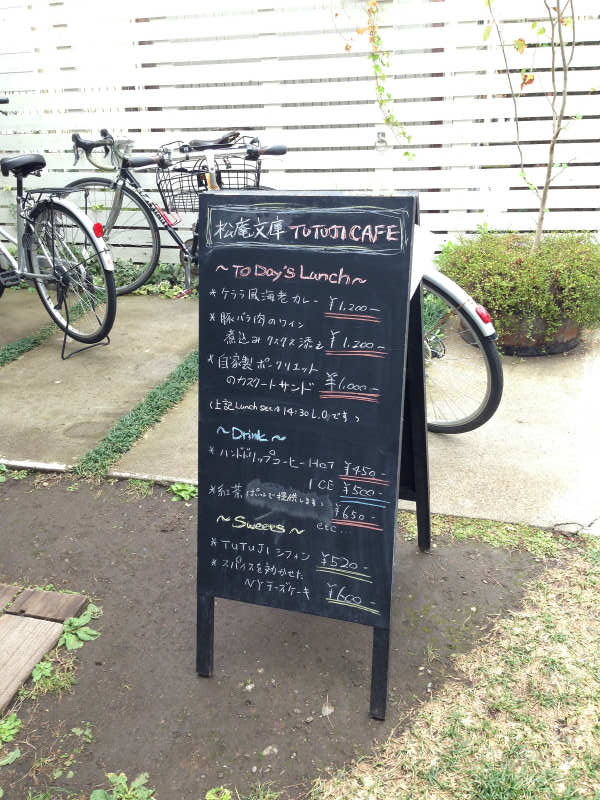 松庵文庫 TUTUJI CAFE
~ToDay's Lunch~
* ケララ風海老カレー ¥1,200-
* 豚バラ肉のワイン
煮込み クスクス添え ¥1,200-
* 自家製ポークリエット
のカスクートサンド ¥1,000-
(上記Lunch setは14:30 L.O.です)
~Drink~
* ハンドドリップコーヒー HOT ¥450-
ICE ¥500-
* 紅茶 ぽっとで提供します ¥650-
etc...
~Sweets~
* TUTUJI シフォン ¥520-
* スパイスを効かせた
NYチーズケーキ ¥600-